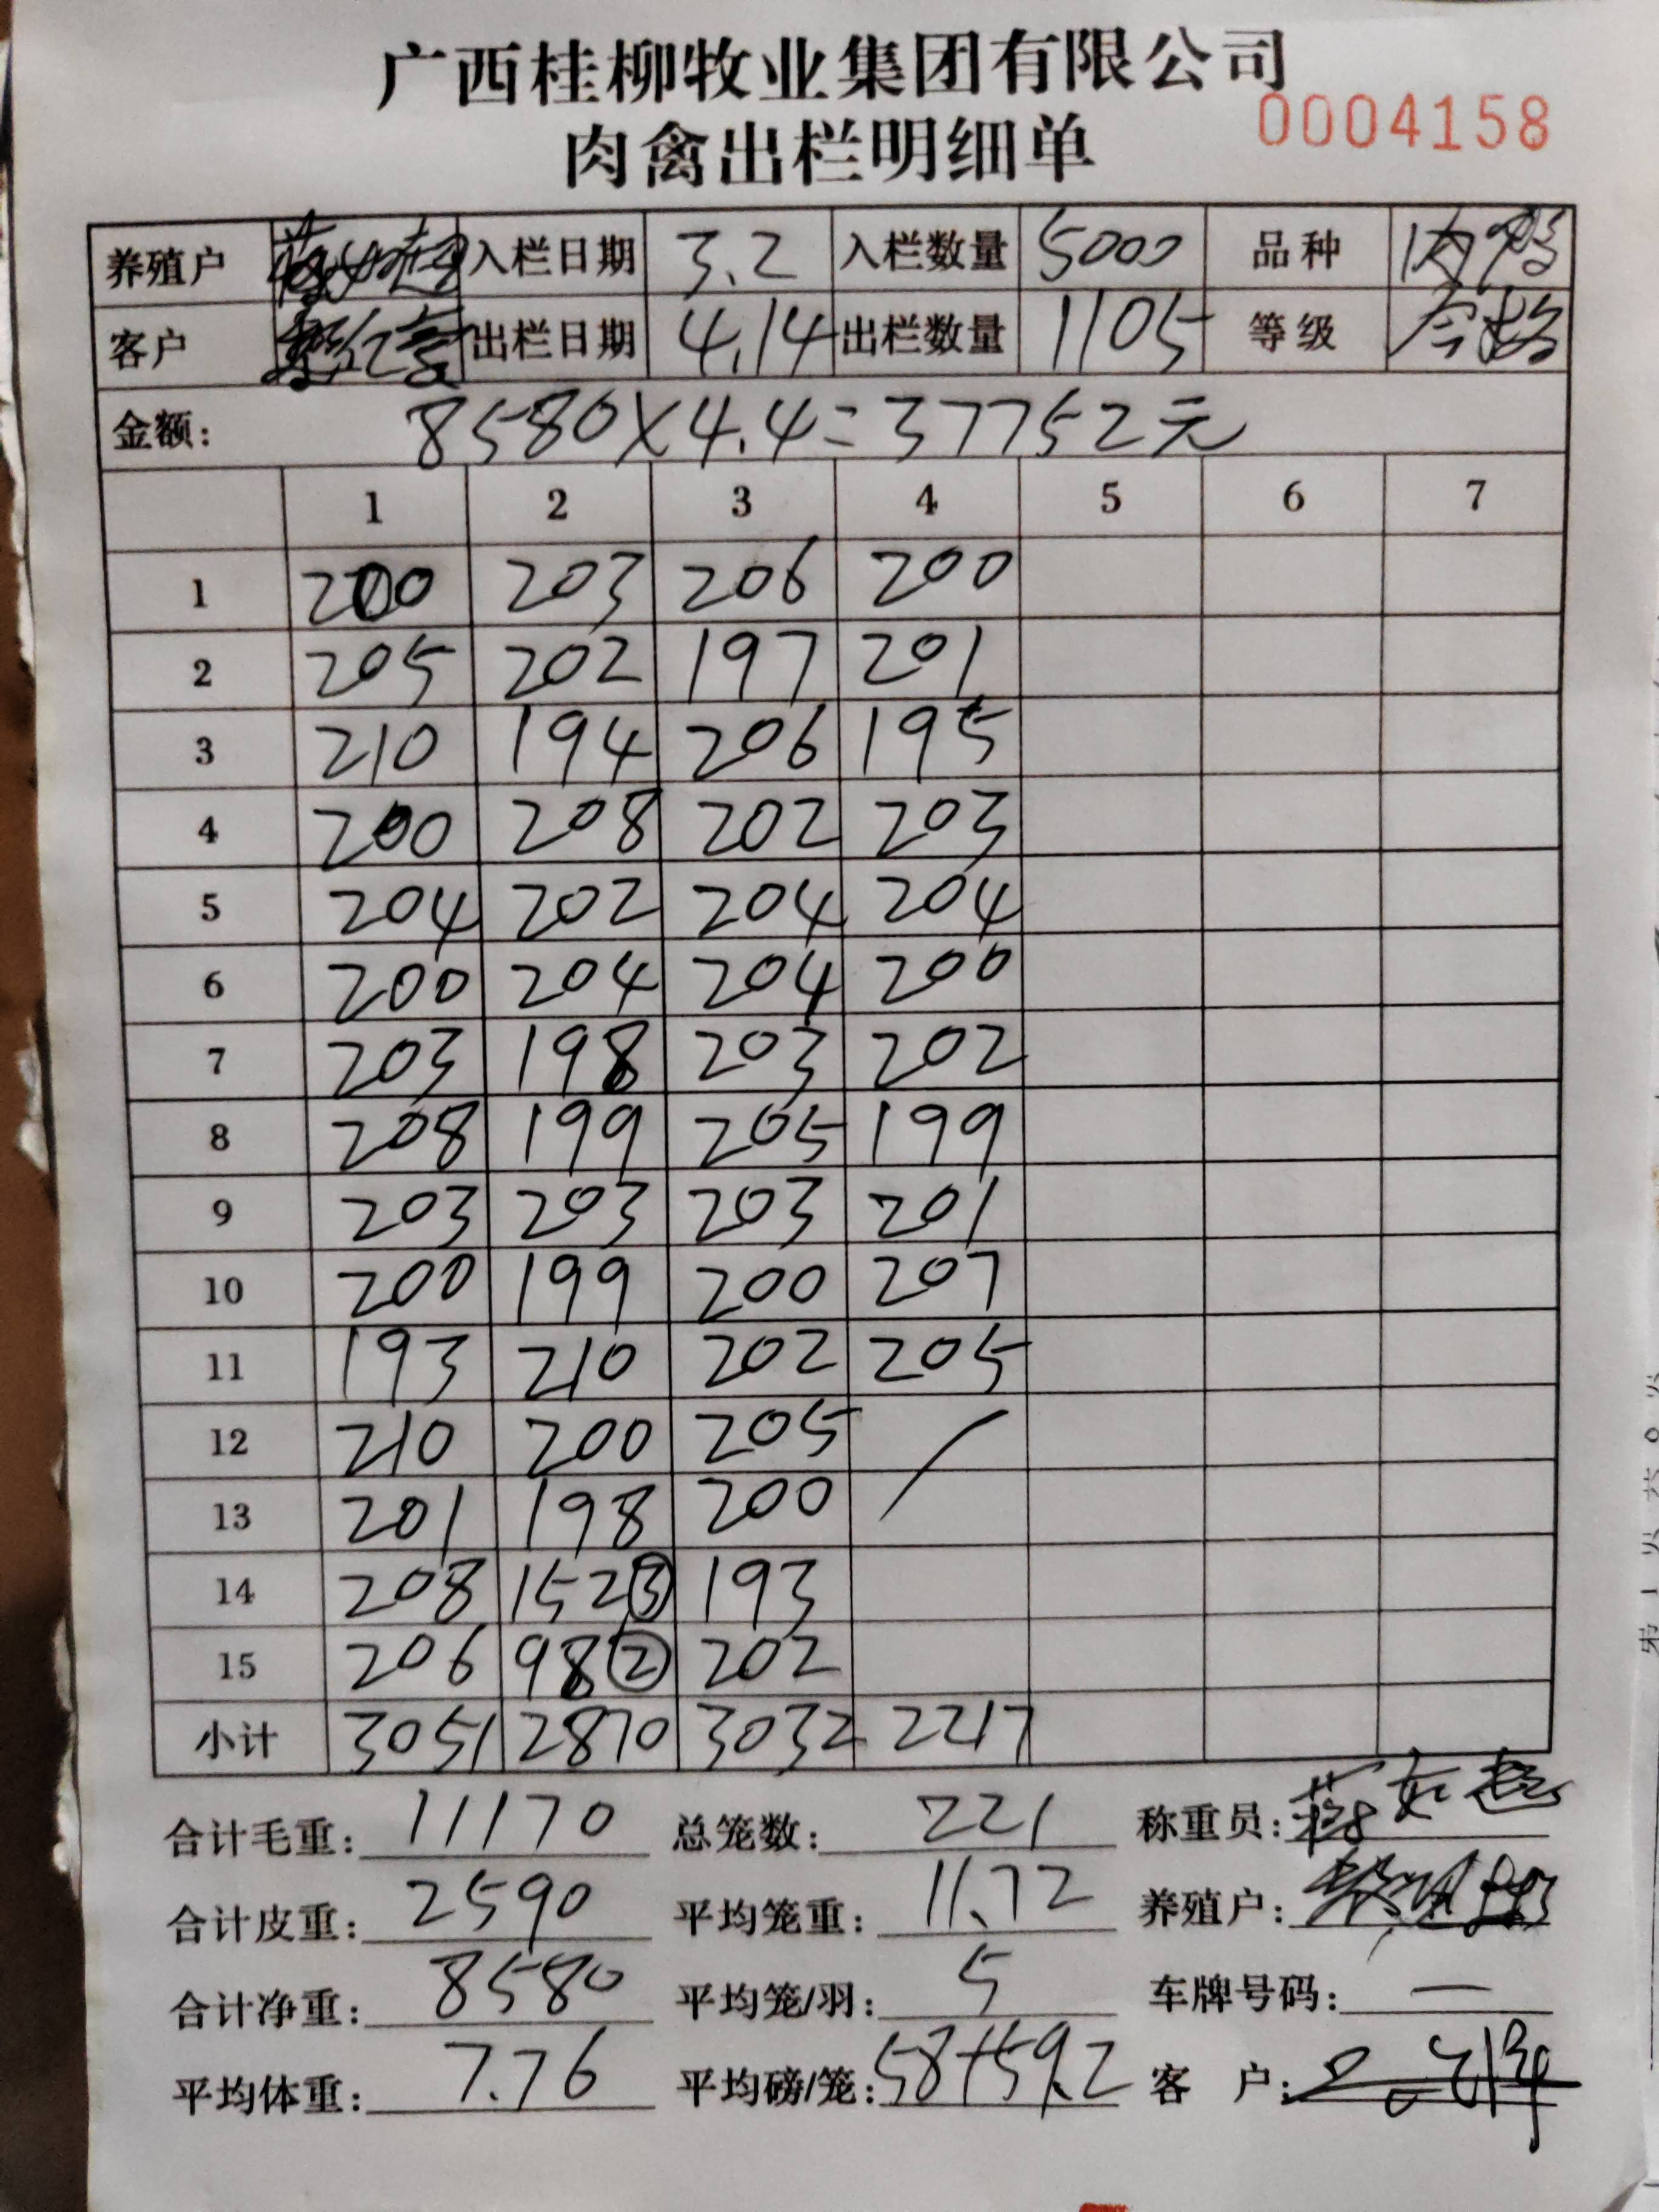 广西桂柳牧业集团有限公司
肉禽出栏明细单 0004158
养殖户 入栏日期 3.2 入栏数量 5000 品种 肉鸭
客户 出栏日期 4.14 出栏数量 1105 等级 合格
金额: 8580×4.4=37752元
1 2 3 4 5 6 7
1 200 203 206 200
2 205 202 197 201
3 210 194 206 195
4 200 208 202 203
5 204 202 204 204
6 200 204 204 200
7 203 198 203 202
8 208 199 205 199
9 203 203 203 201
10 200 199 200 207
11 193 210 202 205
12 210 200 205
13 201 198 200
14 208 152③ 193
15 206 98② 202
小计 3051 2870 3032 2217
合计毛重: 11170 总笼数: 221 称重员:
合计皮重: 2590 平均笼重: 11.72 养殖户:
合计净重: 8580 平均笼/羽: 5 车牌号码: —
平均体重: 7.76 平均磅/笼: 58+59.2 客 户: